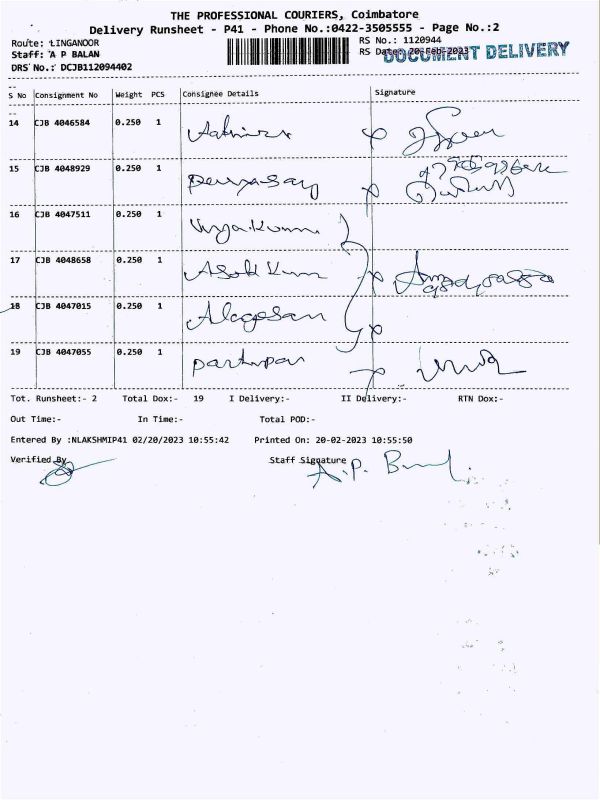 THE PROFESSIONAL COURIERS, Coimbatore
Delivery Runsheet - P41 - Phone No.:0422-3505555 - Page No.:2
Route: LINGANOOR
RS No.: 1120944
Staff: A P BALAN
RS Date: 20-Feb-2023
DOCUMENT DELIVERY
DRS No.: DCJB112094402
S No Consignment No Weight PCS Consignee Details Signature
14 CJB 4046584 0.250 1
15 CJB 4048929 0.250 1
16 CJB 4047511 0.250 1
17 CJB 4048658 0.250 1 Asok Kum
18 CJB 4047015 0.250 1 Alagesan
19 CJB 4047055 0.250 1
Tot. Runsheet:- 2 Total Dox:- 19 I Delivery:- II Delivery:- RTN Dox:-
Out Time:- In Time:- Total POD:-
Entered By :NLAKSHMIP41 02/20/2023 10:55:42 Printed On: 20-02-2023 10:55:50
Verified By Staff Signature
A.P.